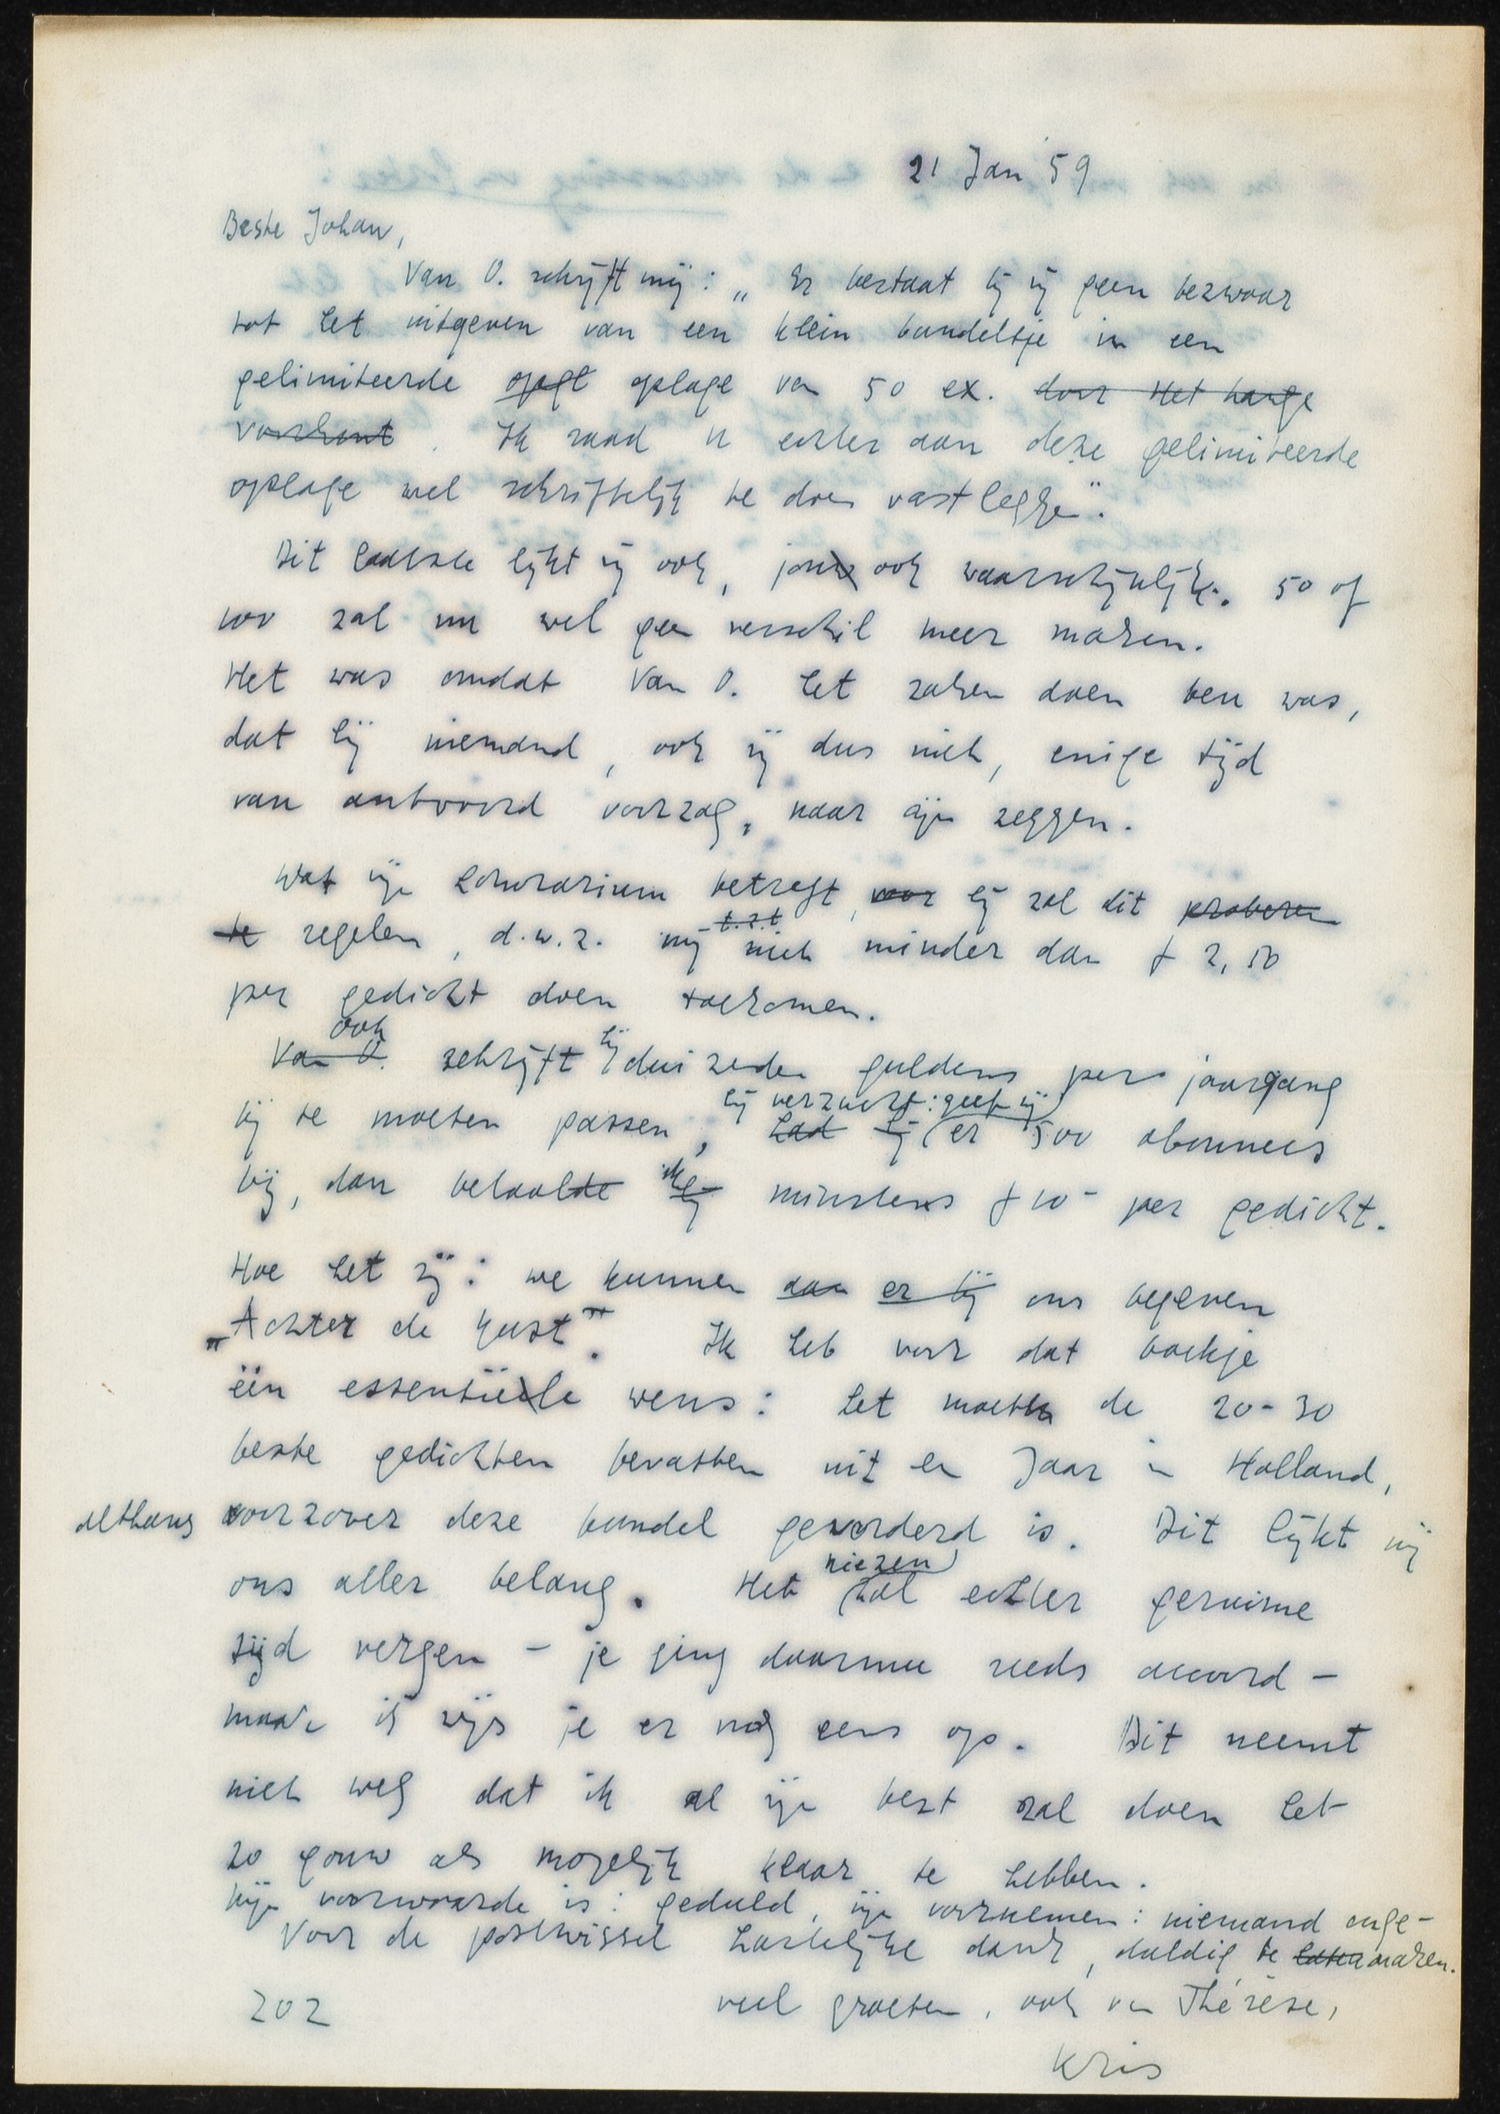 21 Jan '59
Beste Johan,
Van O. schrijft mij: „Er bestaat bij mij geen bezwaar
tot het uitgeven van een klein bundeltje in een
gelimiteerde oplage van 50 ex. door Het hange
voorhout. Ik raad u echter aan deze gelimiteerde
oplage wel schriftelijk te doen vastleggen".
Dit laatste lijkt mij ook, jou ook waarschijnlijk. 50 of
100 zal nu wel geen verschil meer maken.
Het was omdat Van O. het zaken doen beu was,
dat hij niemand, ook mij dus niet, enige tijd
van antwoord voorzag, naar zijn zeggen.
Wat mijn honorarium betreft, hij zal dit proberen
te regelen, d.w.z. mij t.z.t. niet minder dan f 2,50
per gedicht doen toekomen.
Van O. ook schrijft hij duizenden guldens per jaargang
bij te moeten passen, hij verzucht: geef mij had hij er 500 abonnees
bij, dan betaalde ik hij minstens f 10- per gedicht.
Hoe het zij: we kunnen dan er bij ons begeven
„Achter de kust". Ik heb voor dat boekje
één essentiële wens: het moet de 20-30
beste gedichten bevatten uit en Jaar in Holland,
althans voorzover deze bundel gevorderd is. Dit lijkt mij
ons aller belang. Het zal echter geruime
tijd vergen - je ging daarmee reeds accoord -
maar ik wijs je er nog eens op. Dit neemt
niet weg dat ik al mijn best zal doen het
zo gouw als mogelijk klaar te hebben.
Mijn voorwaarde is: geduld, mijn voornemen: niemand onge-
duldig te laten maken.
Voor de postwissel hartelijke dank,
veel groeten, ook van Thérèse,
202
Kris